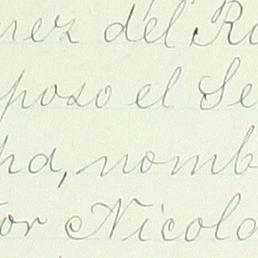 nez del R
poso el Se
ha, nomb
tor Nicola